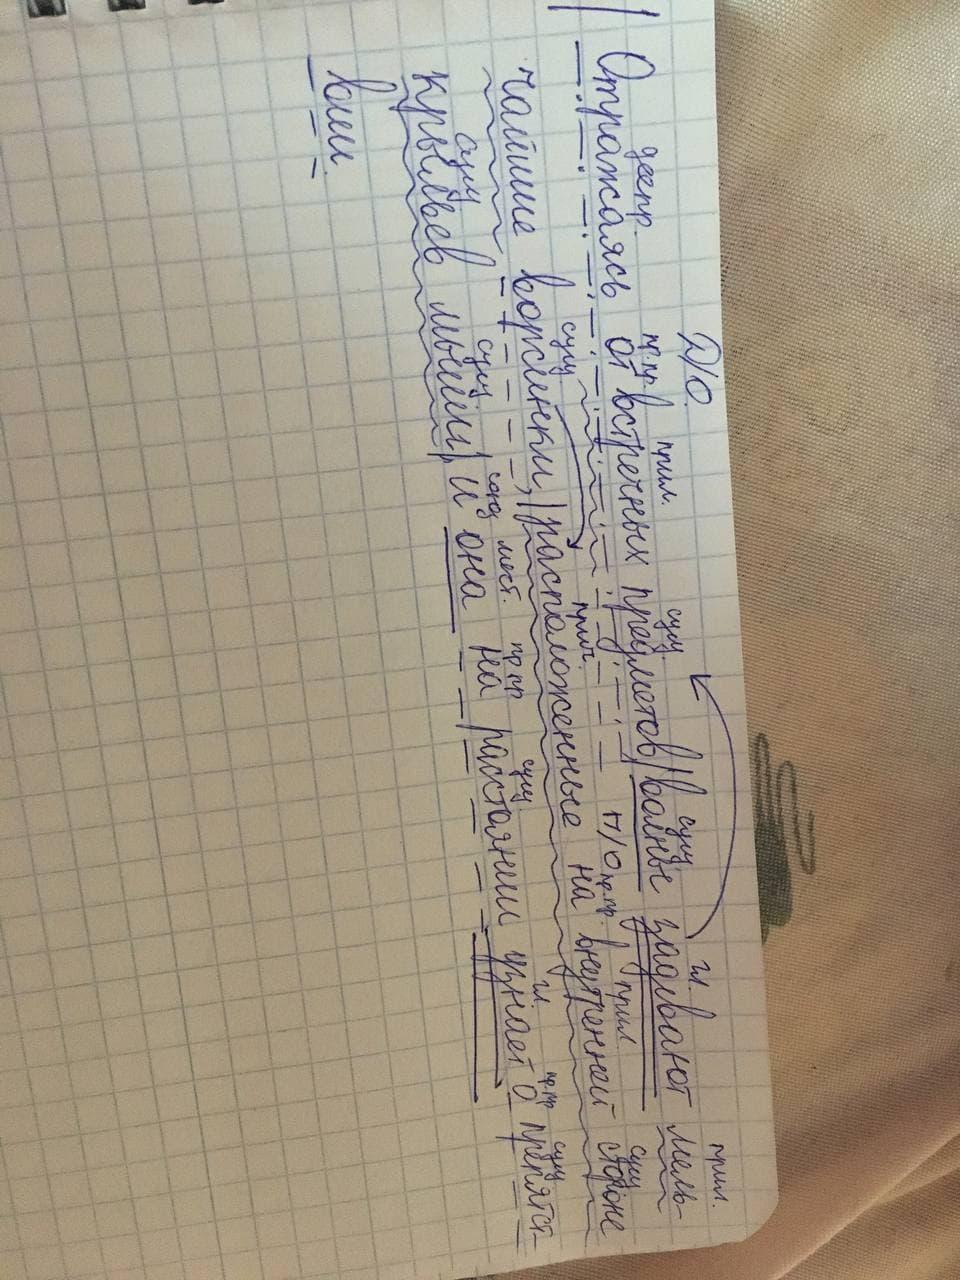 Д/О.
деепр. пр.пр. прил. сущ сущ. гл прил.
Отражаясь от встречных предметов/волны задевают мель-
сущ прич. п/о пр.пр. прил сущ
чайшие ворсинки,|расположенные на внутренней стороне
сущ сущ союз мест. пр.пр сущ. гл. пр.пр сущ
крыльев мыши,/и она на расстоянии узнает о препятст-
вии.